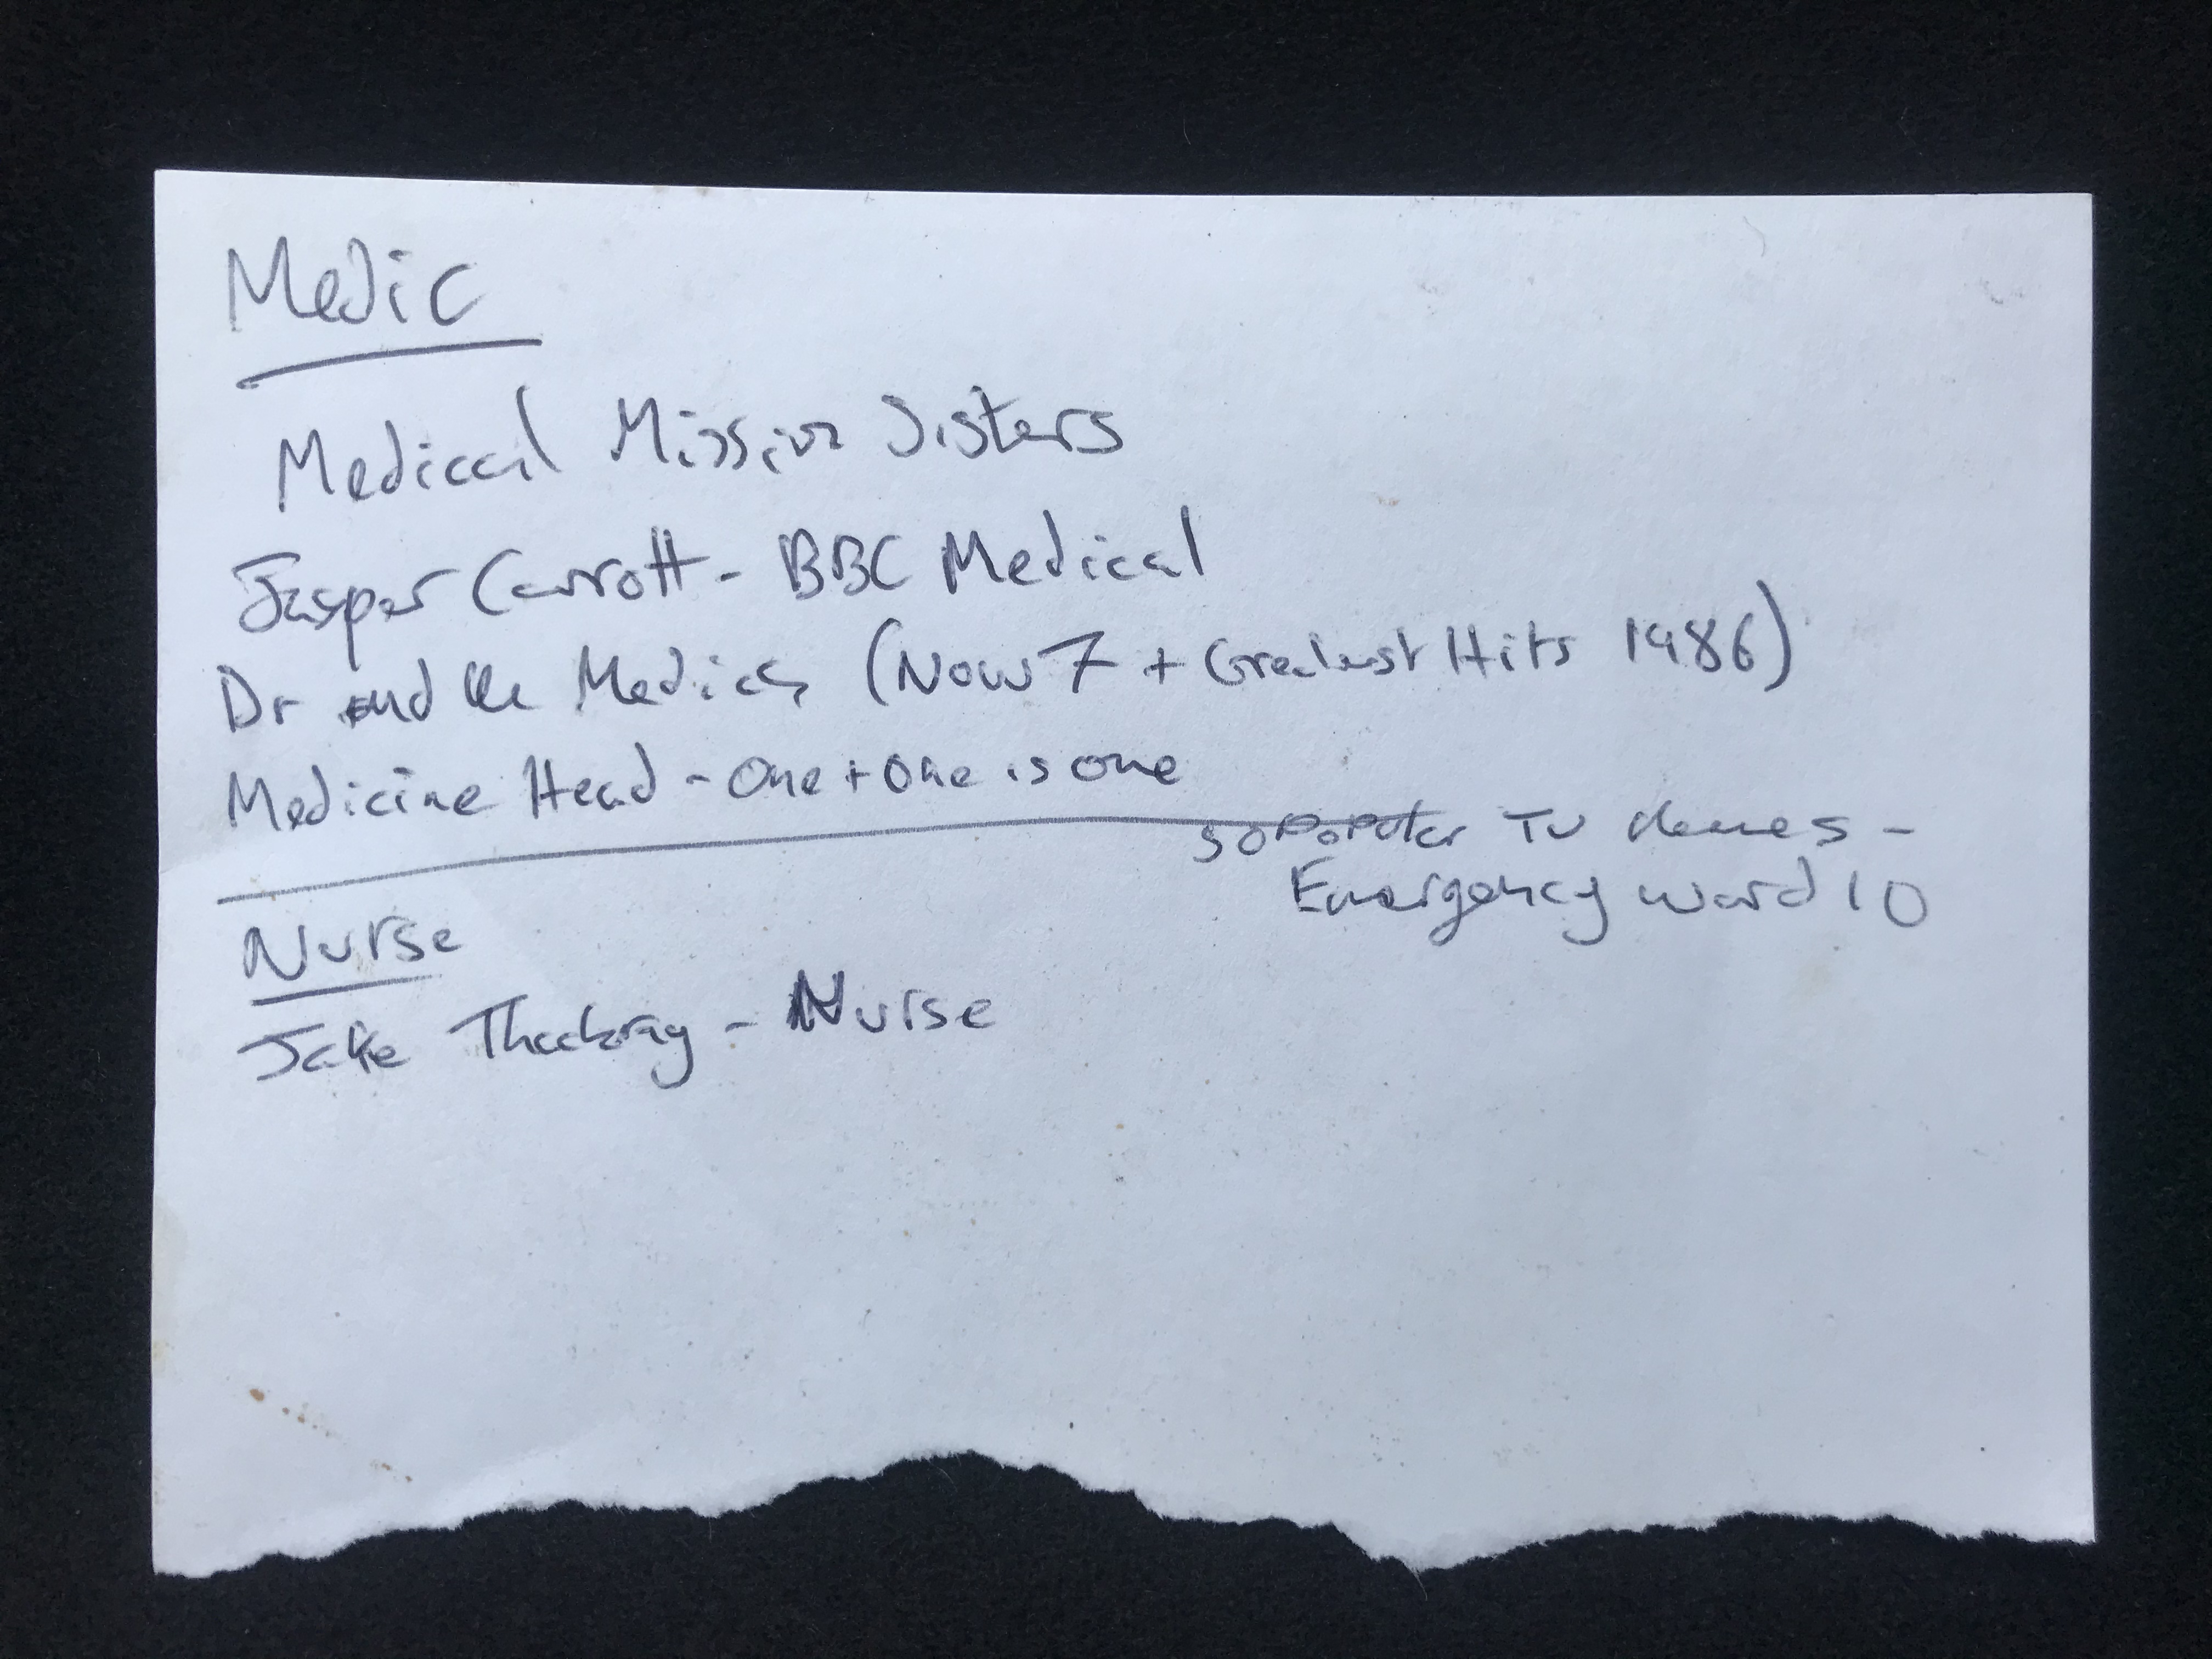 Medic
Medical Mission Sisters
Jasper Carrott - BBC Medical
Dr and the Medics (Now 7 + Greatest Hits 1986)
Medicine Head - One + One is one
50 Popular TV themes -
Emergency ward 10
Nurse
Jake Thackray - Nurse